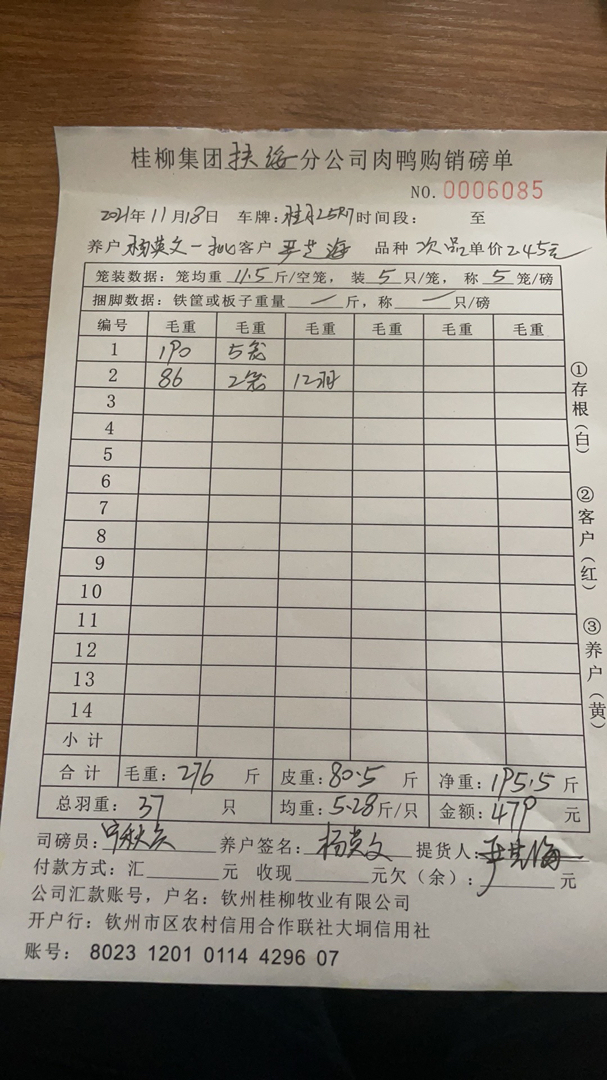 桂柳集团扶绥分公司肉鸭购销磅单
NO.0006085
2021年11月18日 车牌: 时间段: 至
养户杨英文一批 客户严芝海 品种 次品 单价2.45元
笼装数据: 笼均重11.5斤/空笼, 装5只/笼, 称5笼/磅
捆脚数据: 铁筐或板子重量 — 斤, 称 — 只/磅
编号 毛重 毛重 毛重 毛重 毛重 毛重
1 190 5笼
2 86 2笼 12羽
3
4
5
6
7
8
9
10
11
12
13
14
小计
合计 毛重: 276 斤 皮重: 80.5 斤 净重: 195.5 斤
总羽重: 37 只 均重: 5.28斤/只 金额: 479 元
司磅员: 养户签名: 杨英文 提货人: 严芝海
付款方式: 汇 元 收现 元欠(余): 元
公司汇款账号, 户名: 钦州桂柳牧业有限公司
开户行: 钦州市区农村信用合作联社大垌信用社
账号: 8023 1201 0114 4296 07
①存根(白) ②客户(红) ③养户(黄)